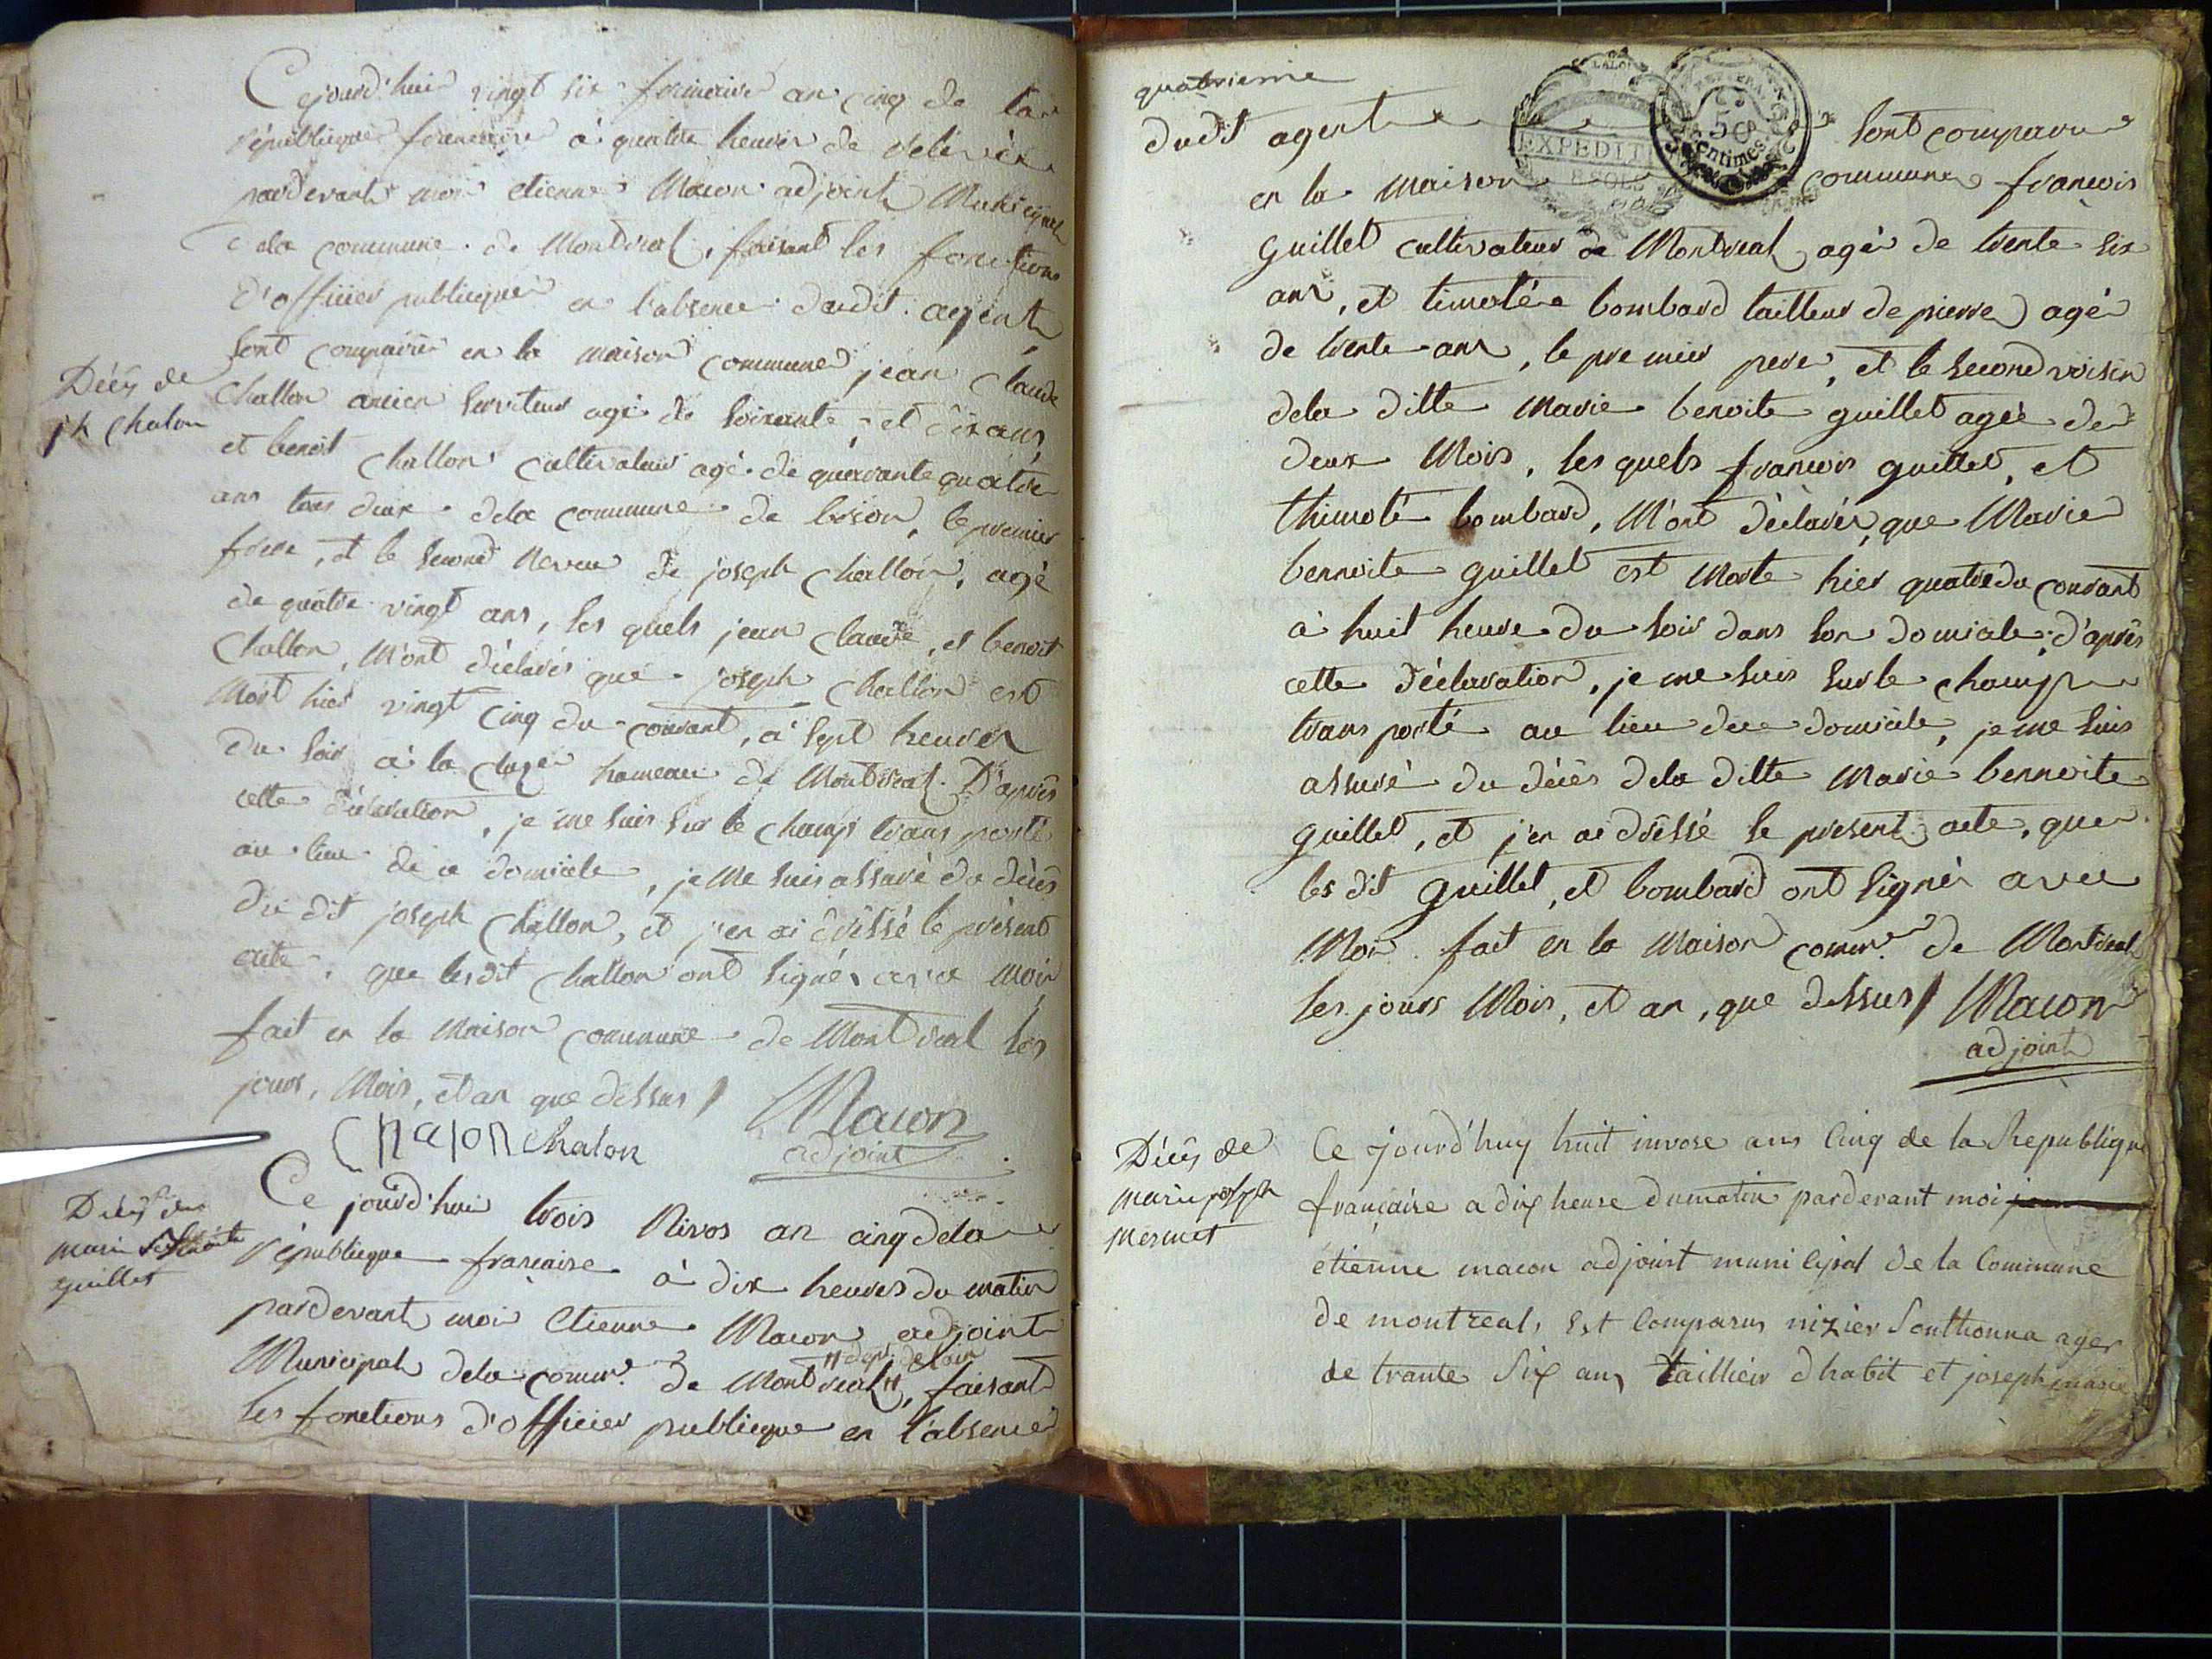 Cejourd'hui vingt six frimaire an cinq de la
république francaise à quatre heures de relévée
pardevant moi etienne Macon adjoint Municipal
dela commune de Montreal, faisant les fonctions
d'officier publicque en l'absence dudit agent,
sont comparu en la maison commune jean Claude
Challon ancien serviteur agé de soixante et dix ans,
et benoit Challon cultivateur agé de quarante quatre
ans tous deux dela commune de, le premier
frere, et le second Neveu de joseph Challon, agé
de quatre vingt ans, les quels jean claude, et benoit
Challon, M'ont déclarés que joseph Challon est
Mort hier vingt cinq du courant, à sept heures
du soir à la hameau de Montreal. D'aprés
cette déclaration, je me suis sur le champ transporté
au lieu de ce domicile, je me suis assuré du décés
du dit joseph Challon, et j'en ai dréssé le présent
acte, que lesdit Challon ont signés avec moi
fait en la Maison commune de Montreal les
jours, Mois, et an que dessus / Macon
adjoint
Chalon chalon
Décés de
jh Chalon
Ce jourd'hui trois Nivos an cinq dela
république francaise à dix heures du matin
pardevant moi Etienne Macon adjoint
Municipal dela comm.e de Montreal #, faisant
# dépt. de lain
les fonctions d'officier publicque en l'absence
Décés de
marie benoite
guillet
quatrieme
dudit agent sont comparu
en la maison commune francois
guillet cultivateur de Montreal agé de trente six
ans, et timotée bombard tailleur de pierre agé
de trente ans, le premier pere, et le second voisin
dela ditte Marie benoite guillet ageé de
deux Mois, les quels francois guillet, et
thimoté bombard, M'ont déclarés, que Marie
bennoite guillet est Morte hier quatre du courant
à huit heure du soir dans son domicile, d'aprés
cette déclaration, je me suis sur le champ
transporté au lieu due domicile, je me suis
assuré du décés dela ditte Marie bennoite
guillet, et j'en ai dréssé le present acte, que
les dit guillet, et bombard ont signés avec
Moi. fait en la Maison comm.e de Montreal
les jours Mois, et an, que dessus / Macon
adjoint
EXPEDITI
8 SOLS
50
centimes
Décés de
marie joseph
mermet
Ce jourd'huy huit nivose ans Cinq de la Republique
française a dix heure du matin pardevant moi
étienne macon adjoint municipal de la Commune
de montréal, est Comparus nizier Sonthonna ager
de trante Six ans taillieir dhabit et joseph marie